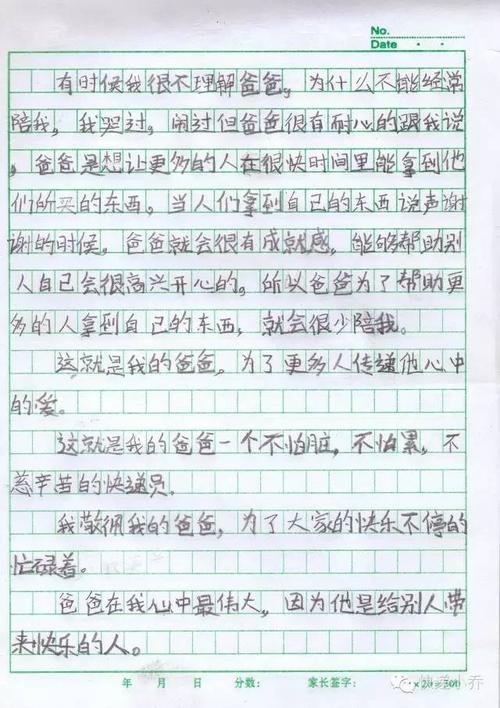 No.
Date
有时候我很不理解爸爸，为什么不能经常
陪我，我哭过，闹过但爸爸很有耐心的跟我说
，爸爸是想让更多的人在很快时间里能拿到他
们所买的东西，当人们拿到自己的东西说声谢
谢的时候。爸爸就会很有成就感，能够帮助别
人自己会很高兴开心的。所以爸爸为了帮助更
多的人拿到自己的东西，就会很少陪我。
这就是我的爸爸。为了更多人传递他心中
的爱。
这就是我的爸爸一个不怕脏，不怕累，不
辛苦的快递员。
我敬佩我的爸爸，为了大家的快乐不停的
忙碌着。
爸爸在我心中最伟大，因为他是给别人带
来快乐的人。
年 月 日 分数： 家长签字： ×20=300
快递小乔